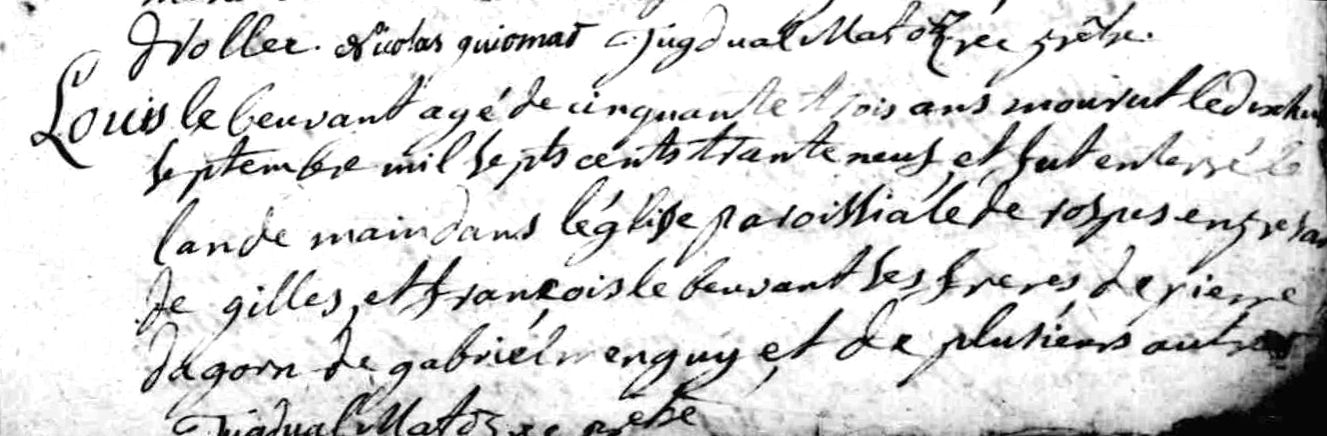 Nicolas guiomar Tugdual Mat prêtre.
Louis le beuvant agé de cinquante trois ans mourut le dix huit
septembre mil septs cents trante neuf, et fut enterré le
lande main dans léglise paroissiale de rospes en presan
de gilles, et françois le beuvant ses freres de pierre
dagorn de gabriél menguy et de plusiéurs autres
Tugdual Mat